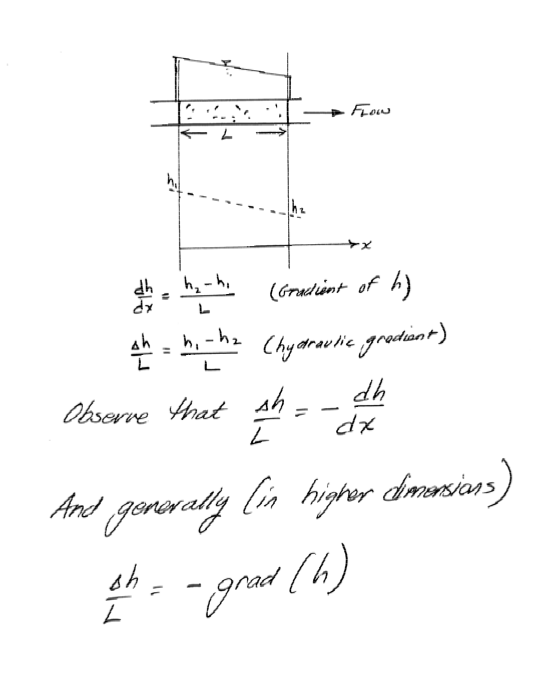 FLOW
L
h₁
h₂
x
dh/dx = (h₂-h₁)/L (Gradient of h)
Δh/L = (h₁-h₂)/L (hydraulic gradient)
Observe that Δh/L = - dh/dx
And generally (in higher dimensions)
Δh/L = - grad (h)